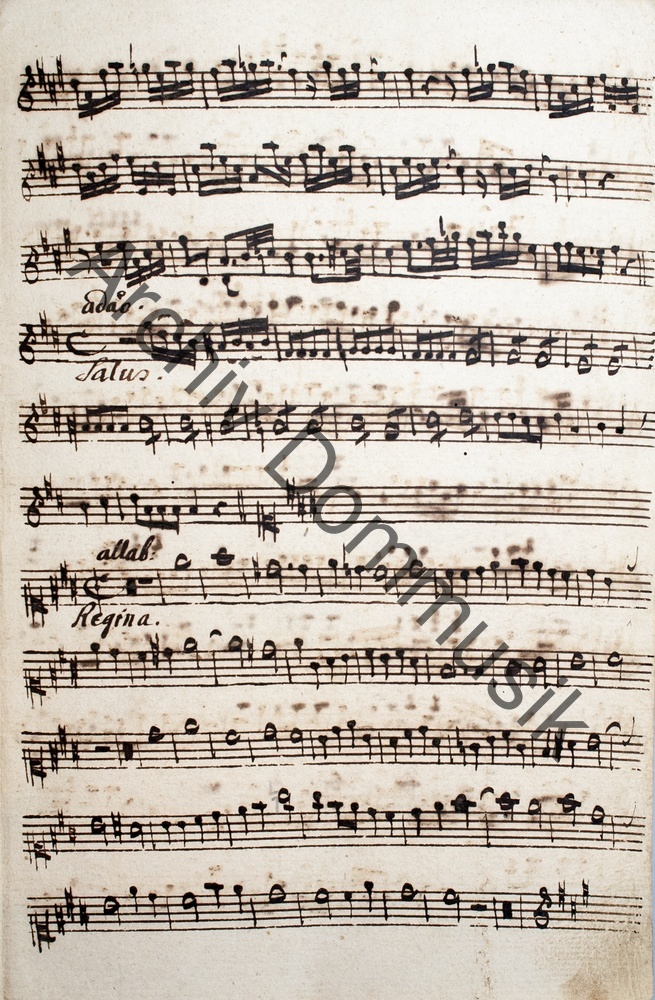 adão.
Salus.
allab:
Regina.
Archiv Dommusik